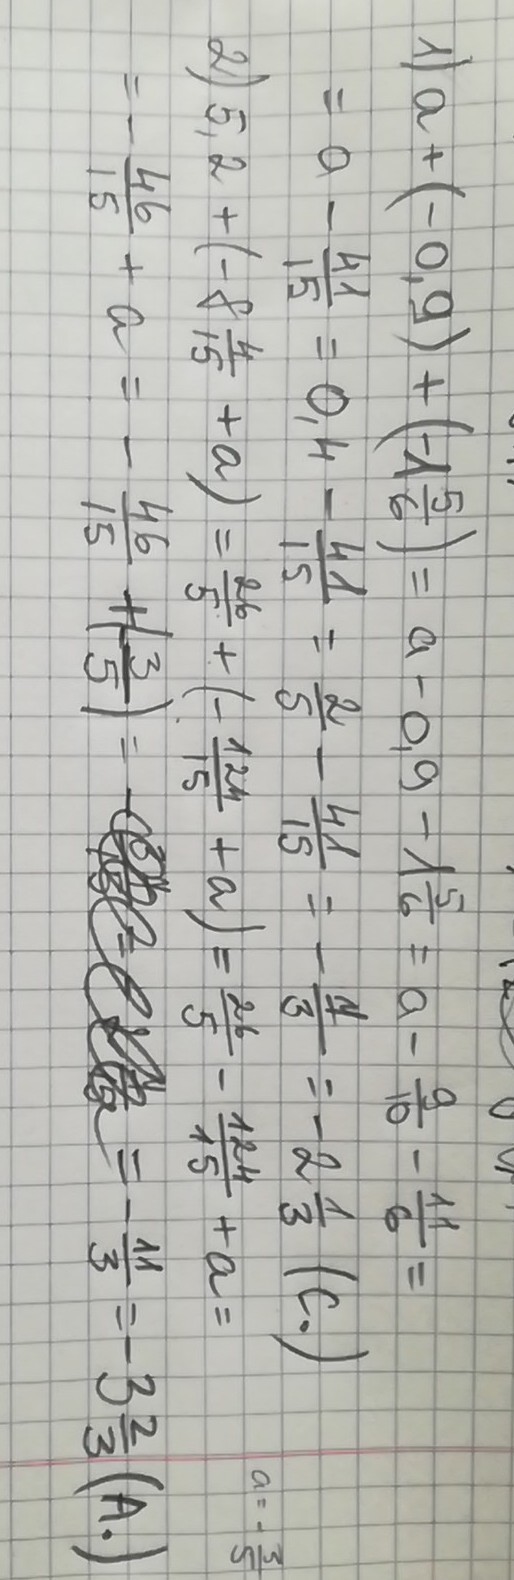 1) a + (-0,9) + (-1 5/6) = a - 0,9 - 1 5/6 = a - 9/10 - 11/6 =
= a - 41/15 = 0,4 - 41/15 = 2/5 - 41/15 = - 7/3 = -2 1/3 (C.)
2) 5,2 + (-8 4/15 + a) = 26/5 + (- 124/15 + a) = 26/5 - 124/15 + a =
a = - 3/5
= - 46/15 + a = - 46/15 + (- 3/5) = = - 11/3 = -3 2/3 (A.)